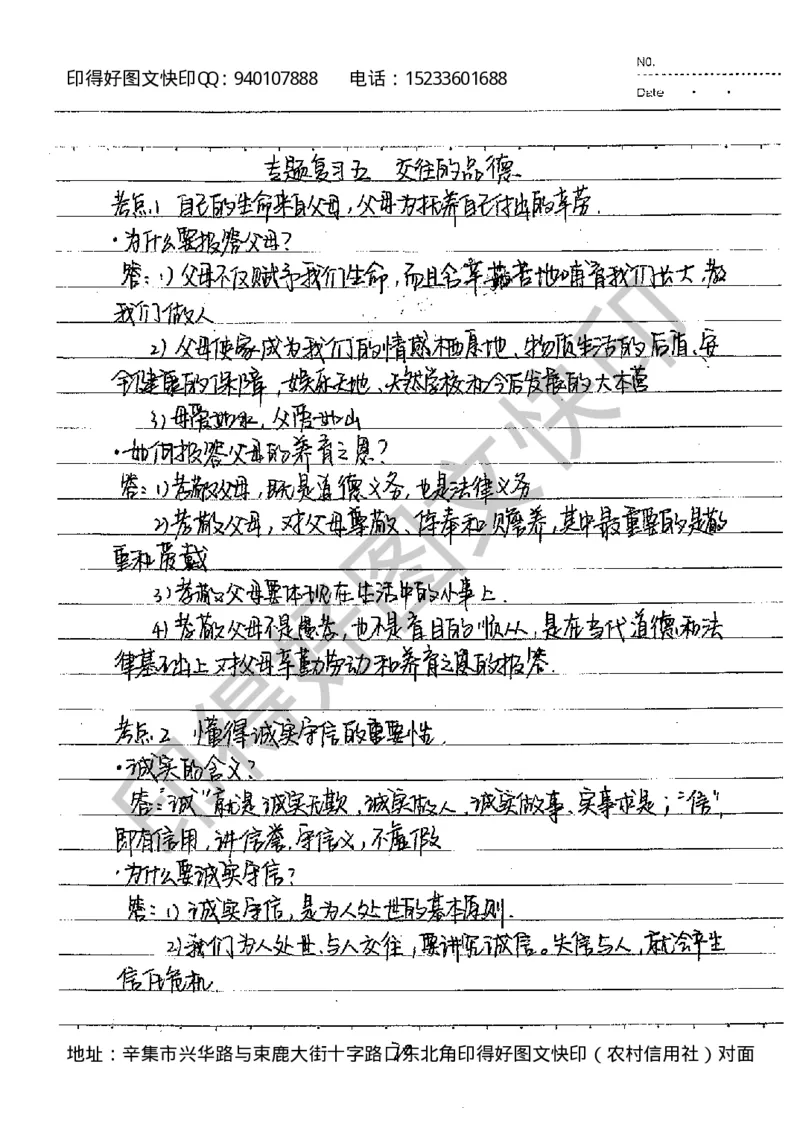 NO.
印得好图文快印QQ：940107888 电话：15233601688
Date
专题复习五 交往的品德
考点1 自己的生命来自父母，父母为抚养自己付出的辛劳.
·为什么要报答父母？
答：1）父母不仅赋予我们生命，而且含辛茹苦地哺育我们长大，教
我们做人
2）父母使家成为我们的情感栖息地、物质生活的后盾、安
全健康的保障，娱乐天地、天然学校和今后发展的大本营
3）母爱如水，父爱如山
·如何报答父母的养育之恩？
答：1）孝敬父母，既是道德义务，也是法律义务
2）孝敬父母，对父母尊敬、侍奉和赡养，其中最重要的是敬
重和爱戴
3）孝敬父母要体现在生活中的小事上.
4）孝敬父母不是愚孝，也不是盲目的顺从，是在当代道德和法
律基础上对父母辛勤劳动和养育之恩的报答.
考点2 懂得诚实守信的重要性.
·诚实的含义？
答："诚"就是诚实无欺，诚实做人，诚实做事、实事求是；"信"，
即有信用，讲信誉，守信义，不虚假
·为什么要诚实守信？
答：1）诚实守信，是为人处世的基本原则.
2）我们为人处世、与人交往，要讲究诚信。失信与人，就会产生
信任危机
地址：辛集市兴华路与束鹿大街十字路口东北角印得好图文快印（农村信用社）对面
印得好图文快印